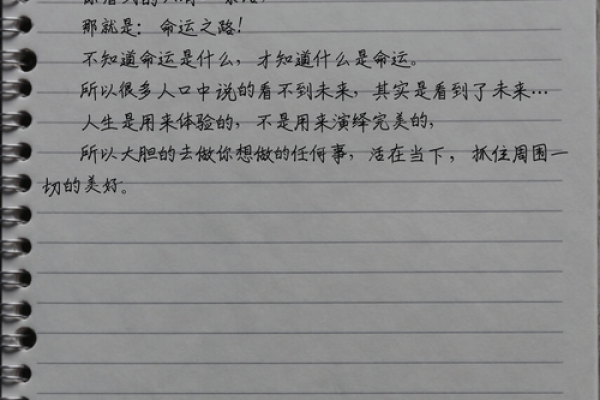 那就是：命运之路！
不知道命运是什么，才知道什么是命运。
所以很多人口中说的看不到未来，其实是看到了未来…
人生是用来体验的，不是用来演绎完美的，
所以大胆的去做你想做的任何事，活在当下，抓住周围一
切的美好。